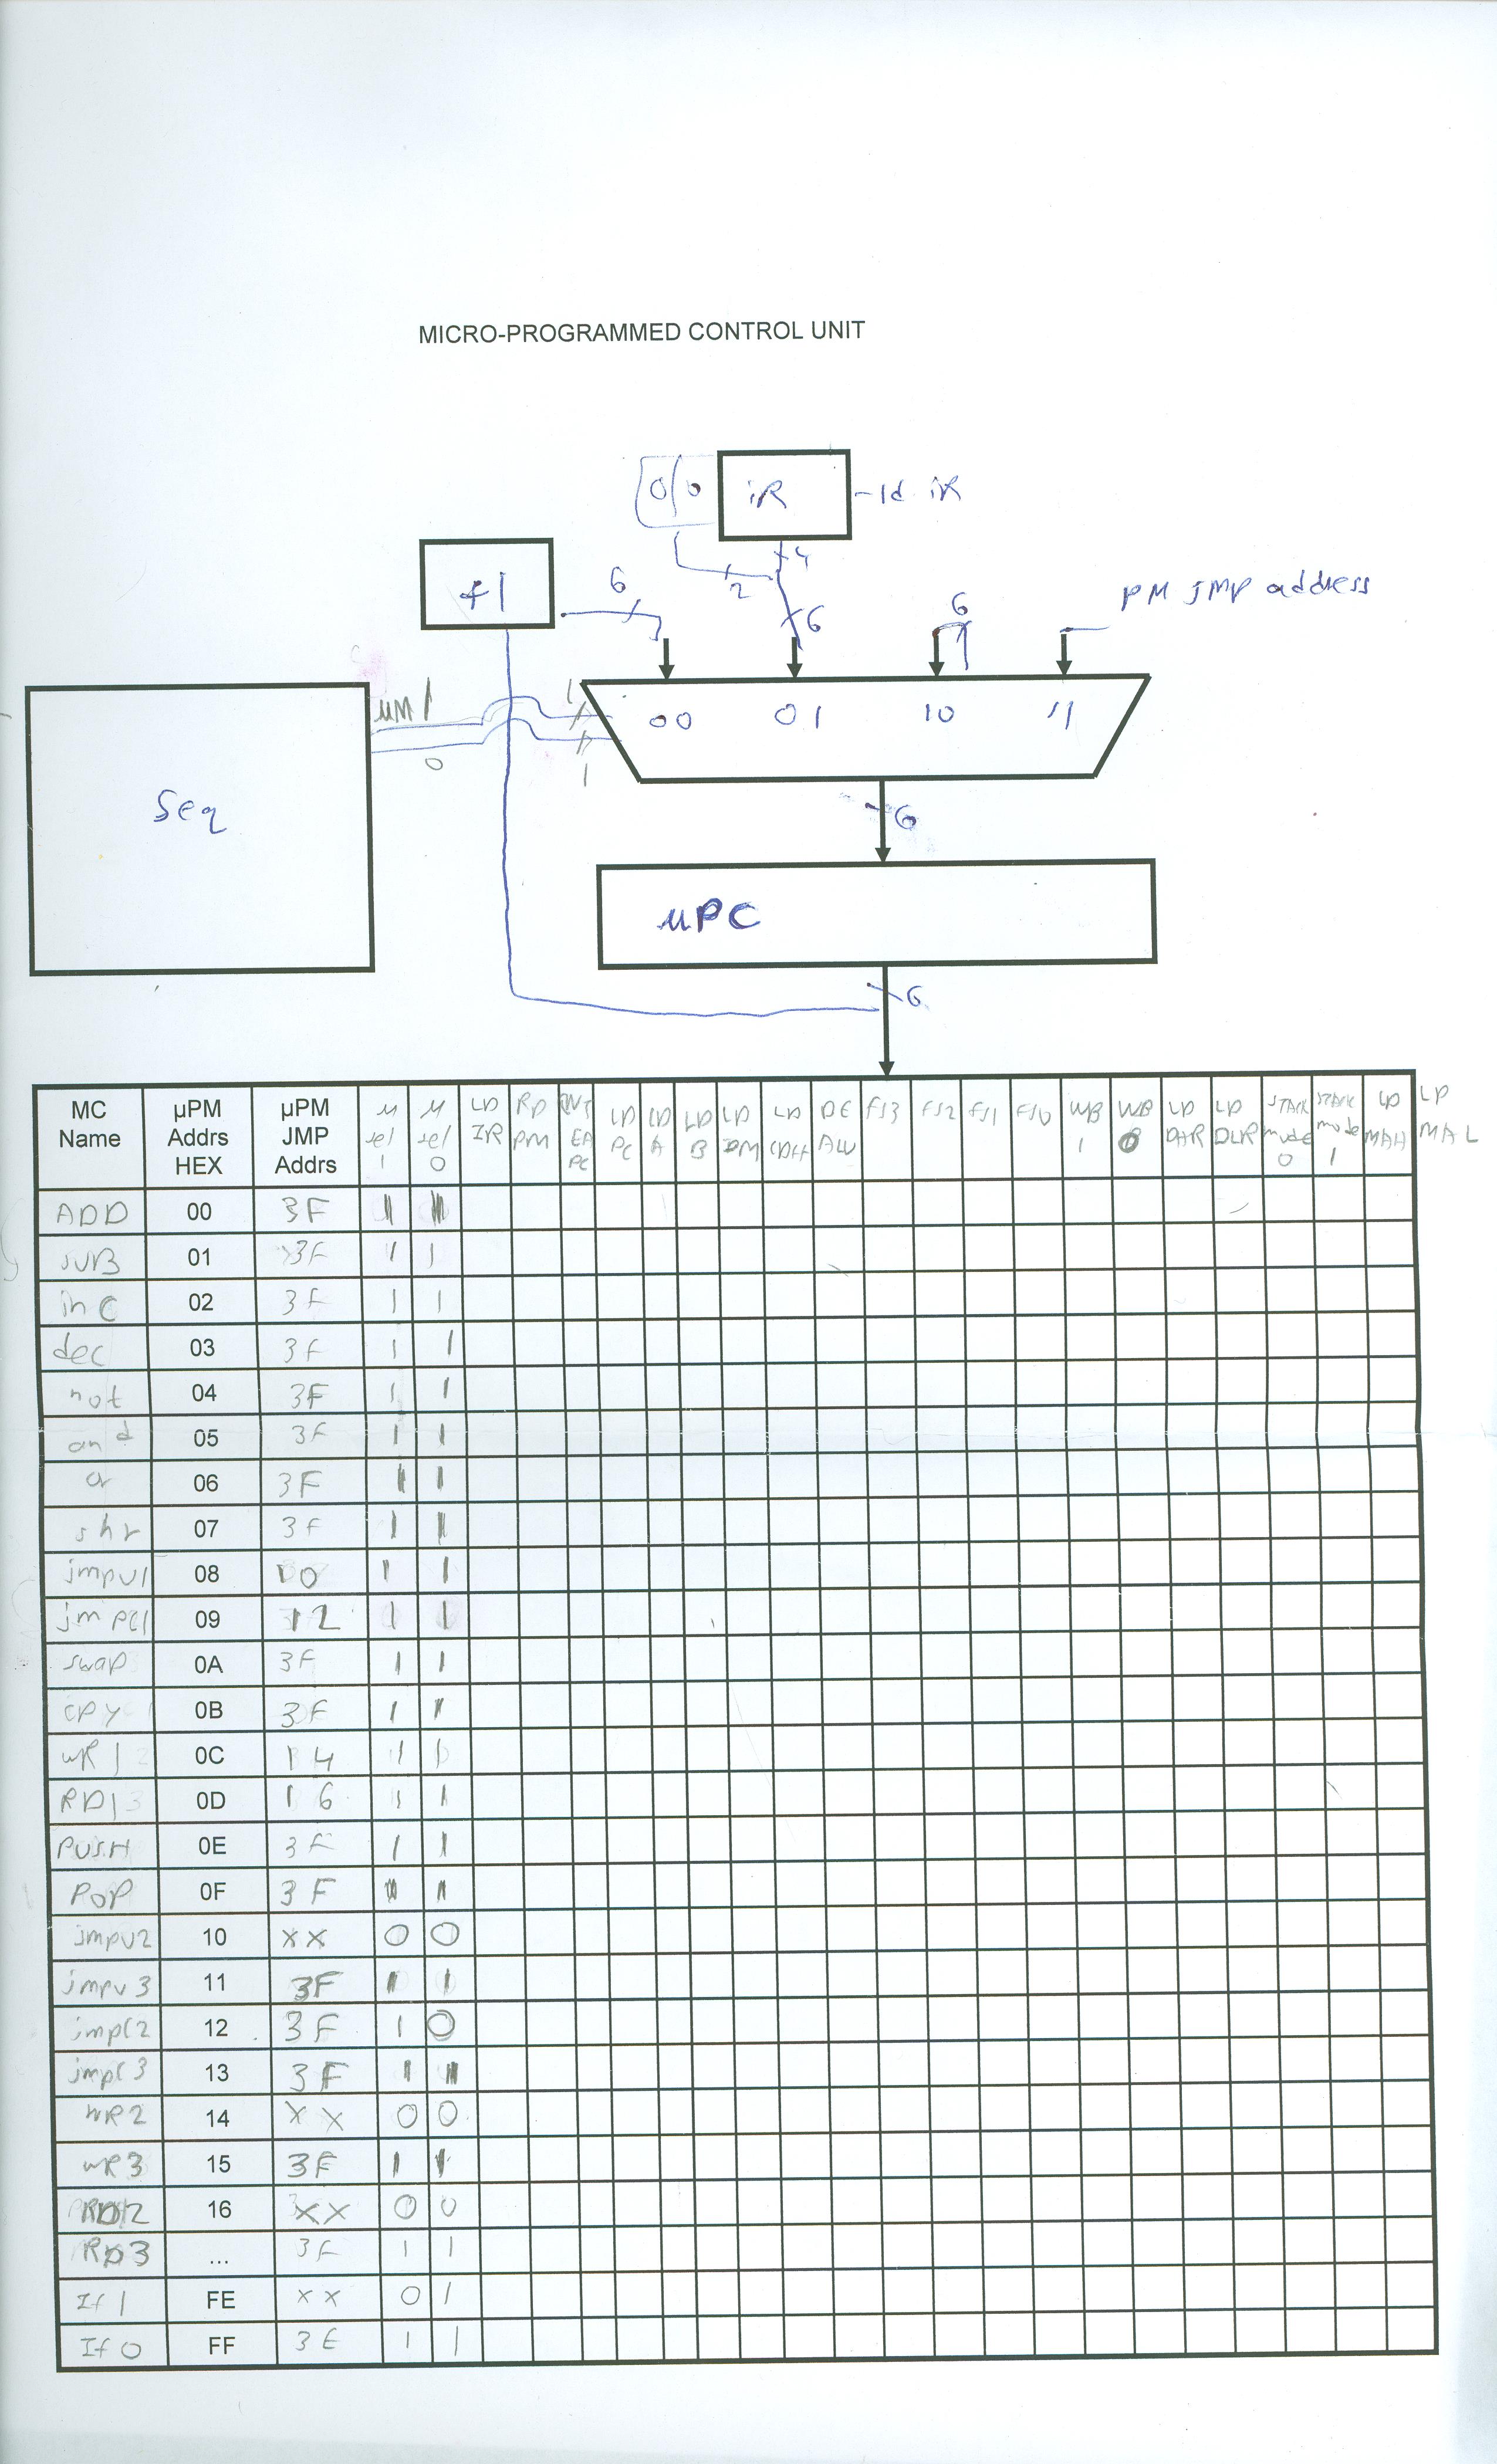 MICRO-PROGRAMMED CONTROL UNIT
0 0 iR - ld iR
+1 6 2 4 6 6 PM JMP address
µM 1
0
1
1
00 01 10 11
Seq
6
µPC
6
MC Name µPM Addrs HEX µPM JMP Addrs µ sel 1 µ sel 0 LD IR RD PM LD PC LD A LD B LD DM LD OE ALU FS3 FS2 FS1 FS0 WB 1 WB 0 LD DAR LD DLR STACK mode 0 STACK mode 1 LD MAH LD MAL
ADD 00 3F 1 1
SUB 01 3F 1 1
inc 02 3F 1 1
dec 03 3F 1 1
not 04 3F 1 1
and 05 3F 1 1
or 06 3F 1 1
shr 07 3F 1 1
jmpu1 08 10 1 1
jmpc1 09 12 1 1
swap 0A 3F 1 1
cpy 0B 3F 1 1
WR1 0C 14 1 1
RD1 0D 16 1 1
PUSH 0E 3F 1 1
POP 0F 3F 1 1
jmpu2 10 xx 0 0
jmpu3 11 3F 1 1
jmpc2 12 3F 1 0
jmpc3 13 3F 1 1
WR2 14 xx 0 0
WR3 15 3F 1 1
RD2 16 xx 0 0
RD3 ... 3F 1 1
If1 FE xx 0 1
If0 FF 3E 1 1